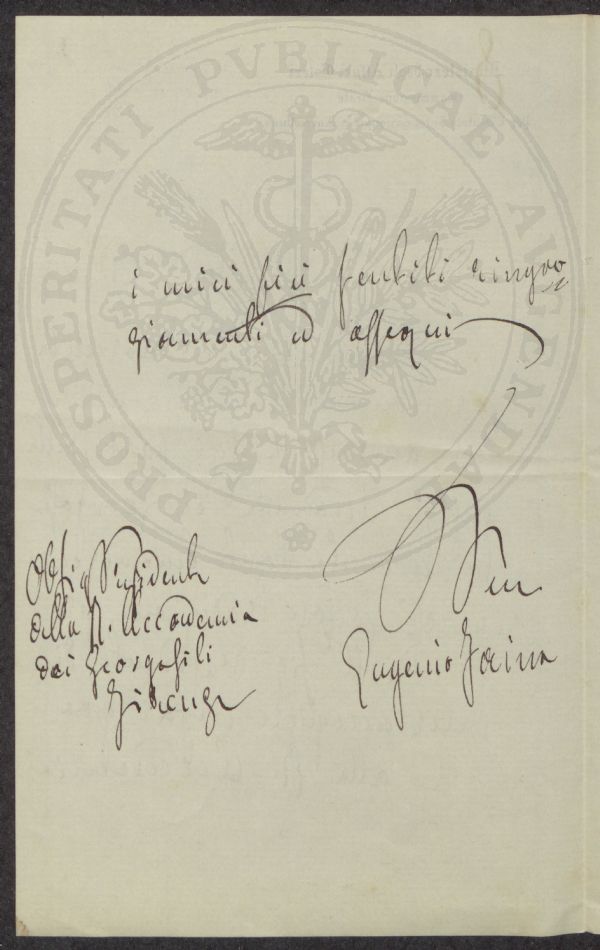 PROSPERITATI PVBLICAE AVGENDAE
i miei più sentiti ringra
ziamenti ed ossequi
Eugenio Faina
Presidente
della R. Accademia
dei Georgofili
Firenze